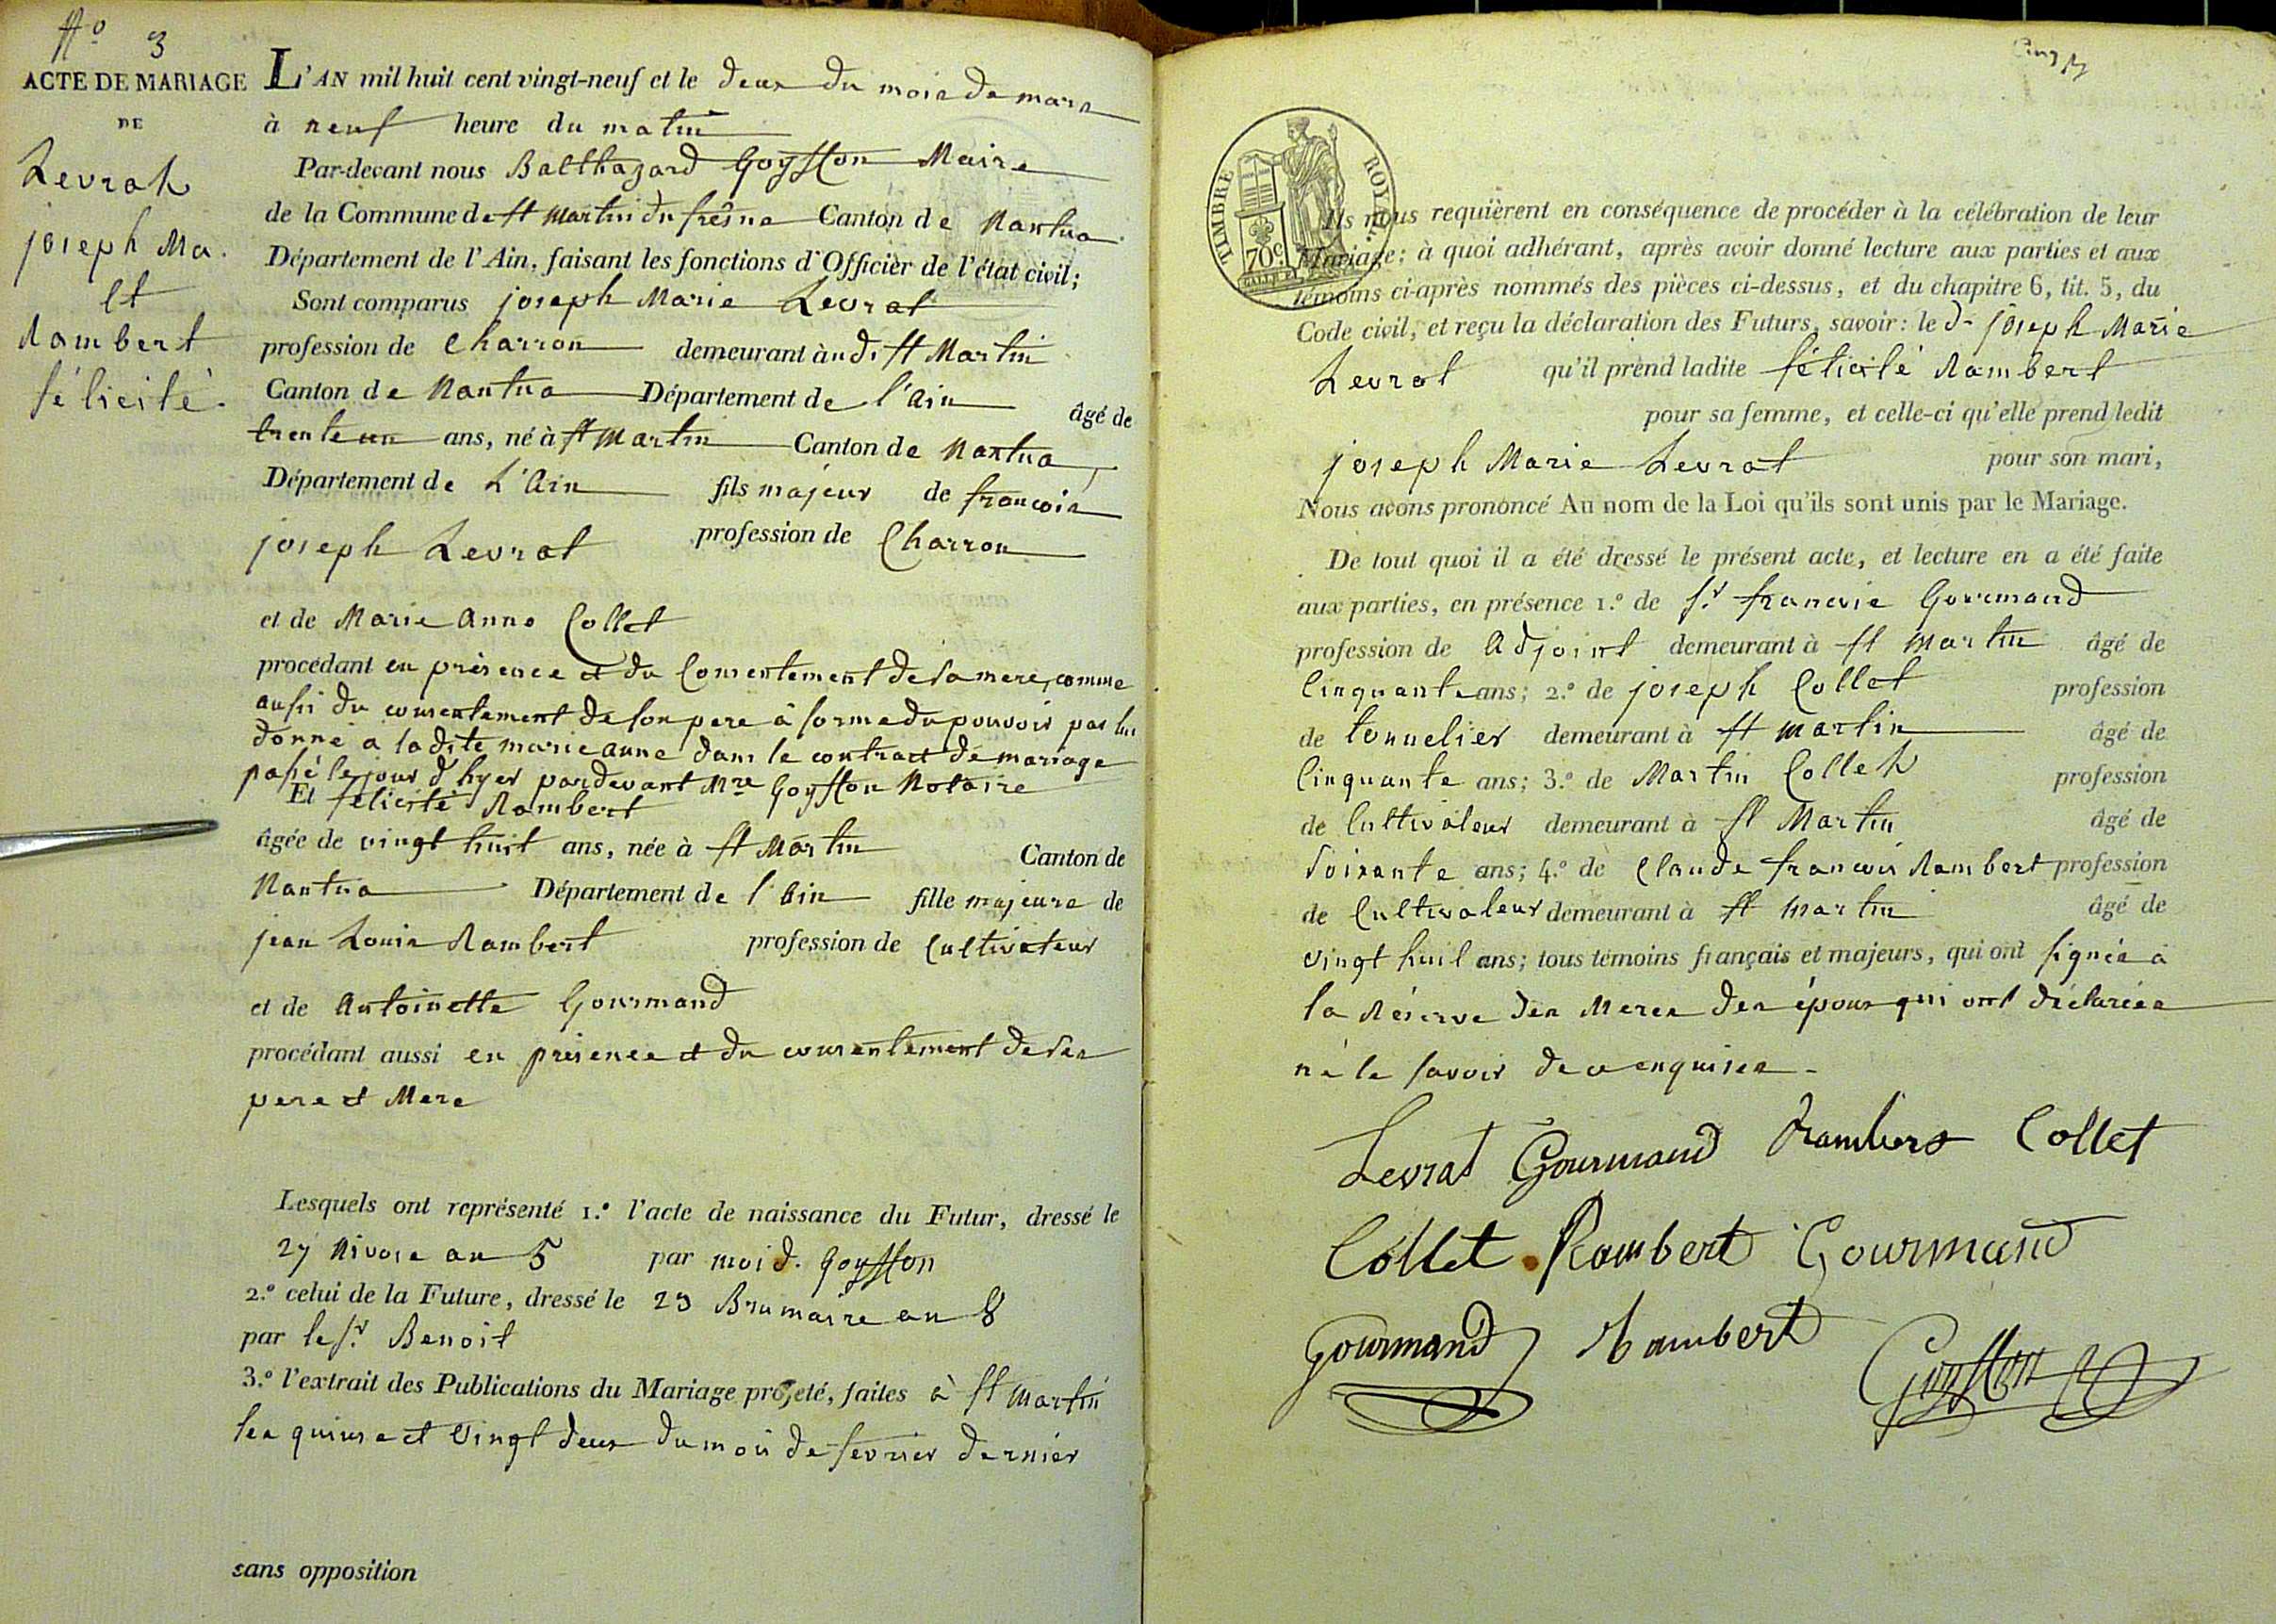 N.o 3
ACTE DE MARIAGE
DE
Levrat
joseph Ma.
et
Rambert
félicité.
L'AN mil huit cent vingt-neuf et le deux du mois de mars
à neuf heure du matin
Par-devant nous Balthazard Goyffon Maire
de la Commune de st Martin du fresne Canton de Nantua
Département de l'Ain, faisant les fonctions d'Officier de l'état civil;
Sont comparus joseph Marie Levrat
profession de Charron demeurant à udt st Martin
Canton de Nantua Département de l'Ain âgé de
trente un ans, né à st Martin Canton de Nantua
Département de L'Ain fils majeur de francois
joseph Levrat profession de Charron
et de Marie Anne Collet
procédant en présence et du Consentement de sa mere, comme
aussi du consentement de son pere à forme du pouvoir par lui
donné a ladite marie anne dans le contract de mariage
passé le jour d'hyer pardevant Mre Goyffon Notaire
Et félicité Rambert
âgée de vingt huit ans, née à st Martin Canton de
Nantua Département de l'Ain fille majeure de
jean Louis Rambert profession de Cultivateur
et de Antoinette Gourmand
procédant aussi en présence et du consentement de ses
pere et Mere
Lesquels ont représenté 1.º l'acte de naissance du Futur, dressé le
27 Nivose an 5 par moi d. Goyffon
2.º celui de la Future, dressé le 23 Brumaire an 8
par le sr. Benoit
3.º l'extrait des Publications du Mariage projeté, faites à st Martin
les quinse et Vingt deux du mois de fevrier dernier
sans opposition
TIMBRE ROYAL
70c
Ils nous requièrent en conséquence de procéder à la célébration de leur
Mariage; à quoi adhérant, après avoir donné lecture aux parties et aux
témoins ci-après nommés des pièces ci-dessus, et du chapitre 6, tit. 5, du
Code civil, et reçu la déclaration des Futurs, savoir: le d. joseph Marie
Levrat qu'il prend ladite félicité Rambert
pour sa femme, et celle-ci qu'elle prend ledit
joseph Marie Levrat pour son mari,
Nous avons prononcé Au nom de la Loi qu'ils sont unis par le Mariage.
De tout quoi il a été dressé le présent acte, et lecture en a été faite
aux parties, en présence 1.º de sr. francois Gourmand
profession de Adjoint demeurant à st Martin âgé de
Cinquante ans; 2.º de joseph Collet profession
de tonnelier demeurant à st martin âgé de
Cinquante ans; 3.º de Martin Collet profession
de Cultivateur demeurant à st Martin âgé de
Soixante ans; 4.º de Claude francois Rambert profession
de Cultivateur demeurant à st Martin âgé de
vingt huit ans; tous témoins français et majeurs, qui ont signés à
la Réserve des Meres des époux qui ont déclarées
ne le savoir de ce enquises.
Levrat Gourmand Rambert Collet
Collet Rambert Gourmand
Gourmand Rambert Goyffon